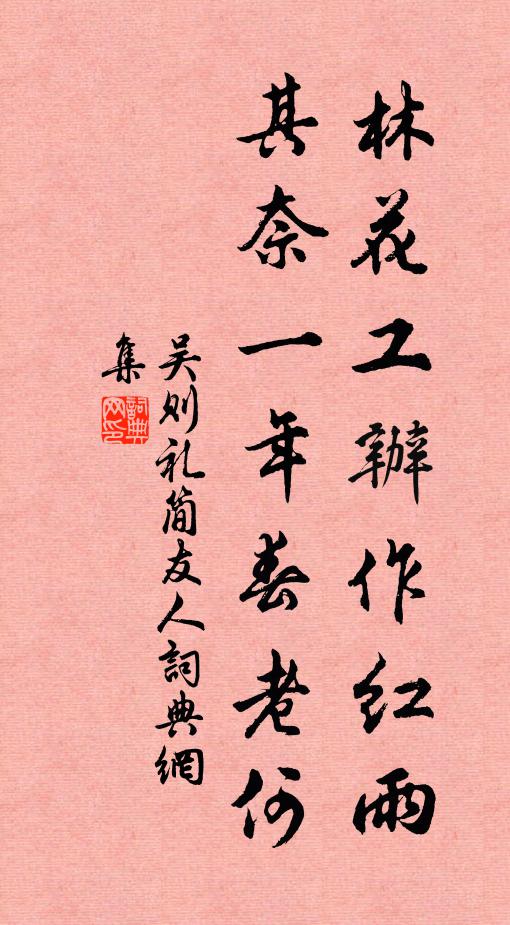 林花工辦作红雨
其奈一年春老何
吴则礼简友人詞典網
集
詞典网印